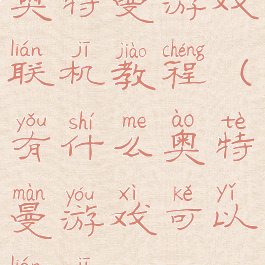 奥特曼游戏
lián jī jiào chéng
联机教程（
yǒu shí me ào tè
有什么奥特
màn yóu xì kě yǐ
曼游戏可以
lián jī